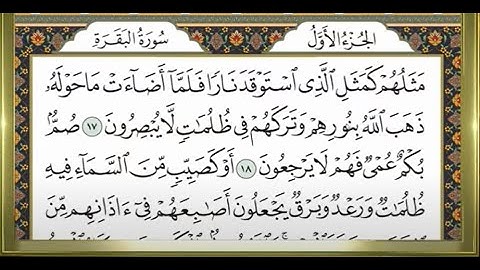 الجزء الأول
سورة البقرة
مَثَلُهُمْ كَمَثَلِ ٱلَّذِى ٱسْتَوْقَدَ نَارًا فَلَمَّآ أَضَآءَتْ مَا حَوْلَهُۥ
ذَهَبَ ٱللَّهُ بِنُورِهِمْ وَتَرَكَهُمْ فِى ظُلُمَٰتٍ لَّا يُبْصِرُونَ ١٧ صُمٌّۢ
بُكْمٌ عُمْىٌ فَهُمْ لَا يَرْجِعُونَ ١٨ أَوْ كَصَيِّبٍ مِّنَ ٱلسَّمَآءِ فِيهِ
ظُلُمَٰتٌ وَرَعْدٌ وَبَرْقٌ يَجْعَلُونَ أَصَٰبِعَهُمْ فِىٓ ءَاذَانِهِم مِّنَ